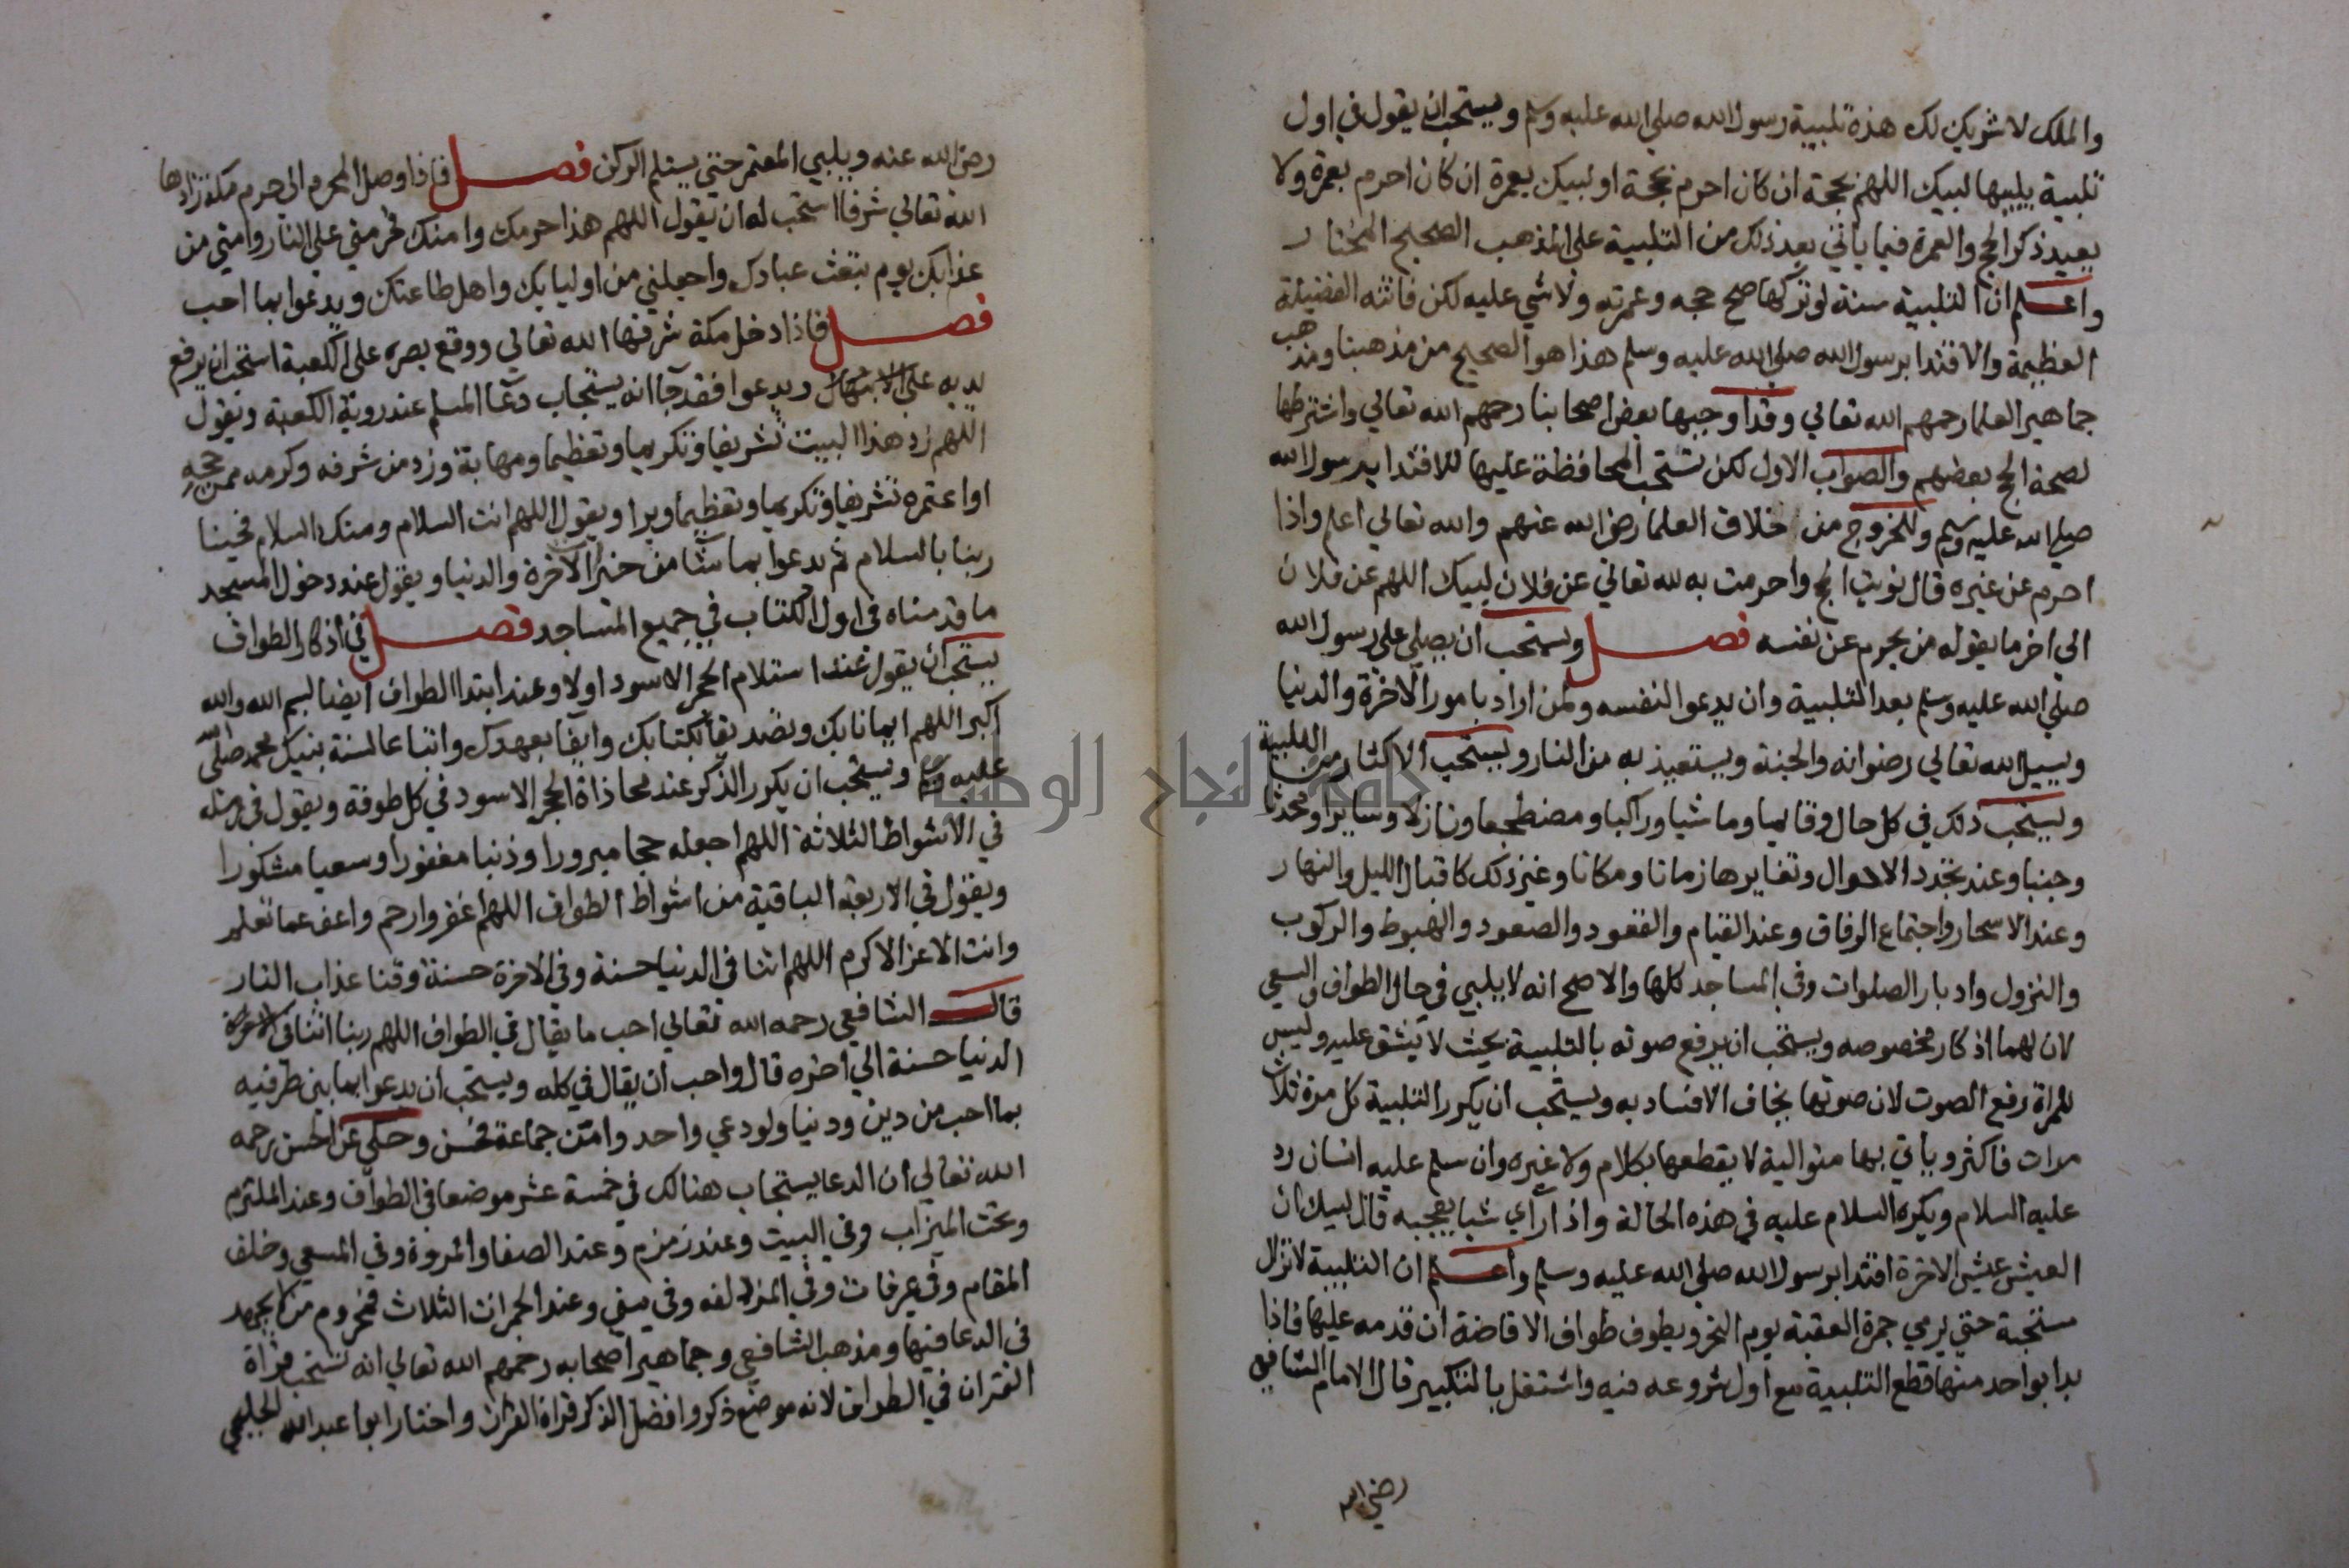 والملك لا شريك لك هذه تلبية رسول الله صلي الله عليه وسلم ويستحب ان يقول في اول
تلبية يلبيها لبيك اللهم بحجة ان كان احرم بحجة او لبيك بعمرة ان كان احرم بعمرة ولا
يعيد ذكر الحج والعمرة فيما ياتي بعد ذلك من التلبية علي المذهب الصحيح المختار
واعلم ان التلبية سنة لو تركها صح حجه وعمرته ولا شي عليه لكن فاتته الفضيلة
العظيمة والاقتدا برسول الله صلي الله عليه وسلم هذا هو الصحيح من مذهبنا ومذهب
جماهير العلما رحمهم الله تعالي وقد اوجبها بعض اصحابنا رحمهم الله تعالي واشترطها
لصحة الحج بعضهم والصواب الاول لكن تستحب المحافظة عليها للاقتدا برسول الله
صلي الله عليه وسلم وللخروج من خلاف العلما رضي الله عنهم والله تعالي اعلم واذا
احرم عن غيره قال نويت الحج واحرمت به لله تعالي عن فلان لبيك اللهم عن فلان
الي اخر ما يقوله من يحرم عن نفسه فصل ويستحب ان يصلي علي رسول الله
صلي الله عليه وسلم بعد التلبية وان يدعوا لنفسه ولمن اراد بامور الاخرة والدنيا
ويسيل الله تعالي رضوانه والجنة ويستعيذ به من النار ويستحب الاكثار من التلبية
ويستحب ذلك في كل حال وقايما وماشيا وراكبا ومضطجعا ونازلا وسايرا ومحدثا
وجنبا وعند تجدد الاحوال وتغايرها زمانا ومكانا وغير ذلك كاقبال الليل والنهار
وعند الاسحار واجتماع الرفاق وعند القيام والقعود والصعود والهبوط والركوب
والنزول وادبار الصلوات وفي المساجد كلها والاصح انه لا يلبي في حال الطواف والسعي
لان لهما اذكار مخصوصه ويستحب ان يرفع صوته بالتلبية بحيث لا يشق عليه وليس
للمراة رفع الصوت لان صوتها يخاف الافتتان به ويستحب ان يكرر التلبية كل مرة ثلاث
مرات فاكثر وياتي بها متوالية لا يقطعها بكلام ولا غيره وان سلم عليه انسان رد
عليه السلام ويكره السلام عليه في هذه الحالة واذا راي شيا يعجبه قال لبيك ان
العيش عيش الاخرة اقتدا برسول الله صلي الله عليه وسلم واعلم ان التلبية لا تزال
مستحبة حتي يرمي جمرة العقبة يوم النحر ويطوف طواف الافاضة ان قدمه عليها فاذا
بدا بواحد منها قطع التلبية مع اول شروعه فيه واشتغل بالتكبير قال الامام الشافعي
رضي الله
رضي الله عنه ويلبي المعتمر حتي يستلم الركن فصل فاذا وصل المحرم الي حرم مكة زادها
الله تعالي شرفا استحب له ان يقول اللهم هذا حرمك وامنك فحرمني علي النار وامني من
عذابك يوم تبعث عبادك واجعلني من اوليايك واهل طاعتك ويدعوا بما احب
فصل فاذا دخل مكة شرفها الله تعالي ووقع بصره علي الكعبة استحب ان يرفع
يديه ويدعوا فقد جا انه يستجاب دعا المسلم عند روية الكعبة ويقول
اللهم زد هذا البيت تشريفا وتكريما وتعظيما ومهابة وزد من شرفه وكرمه ممن حجه
او اعتمره تشريفا وتكريما وتعظيما وبرا ويقول اللهم انت السلام ومنك السلام فحينا
ربنا بالسلام ثم يدعوا بما شا من خير الاخرة والدنيا ويقول عند دخول المسجد
ما قدمناه في اول الكتاب في جميع المساجد فصل في اذكار الطواف
يستحب ان يقول عند استلام الحجر الاسود اولا وعند ابتدا الطواف ايضا بسم الله والله
اكبر اللهم ايمانا بك وتصديقا بكتابك وايفا بعهدك واتباعا لسنة نبيك محمد صلي الله
عليه وسلم ويستحب ان يكرر الذكر عند محاذاة الحجر الاسود في كل طوفة ويقول في رمله
في الاشواط الثلاثة اللهم اجعله حجا مبرورا وذنبا مغفورا وسعيا مشكورا
ويقول في الاربعة الباقية من اشواط الطواف اللهم اغفر وارحم واعف عما تعلم
وانت الاعز الاكرم اللهم اتنا في الدنيا حسنة وفي الاخرة حسنة وقنا عذاب النار
قال الشافعي رحمه الله تعالي احب ما يقال في الطواف اللهم ربنا اتنا في
الدنيا حسنة الي اخره قال واحب ان يقال في كله ويستحب ان يدعوا بما بين طرفيه
بما احب من دين ودنيا ولو دعي واحد وامن جماعة فحسن وحكي عن الحسن رحمه
الله تعالي ان الدعا يستجاب هنالك في خمسة عشر موضعا في الطواف وعند الملتزم
وتحت الميزاب وفي البيت وعند زمزم وعند الصفا والمروة وفي المسعي وخلف
المقام وفي عرفات وفي المزدلفه وفي مني وعند الجمرات الثلاث فمحروم من لا يجتهد
في الدعا فيها ومذهب الشافعي وجماهير اصحابه رحمهم الله تعالي انه تستحب قراة
القران في الطواف لانه موضع ذكر وافضل الذكر قراة القران واختار ابوا عبد الله الحليمي
جامعة النجاح الوطنية